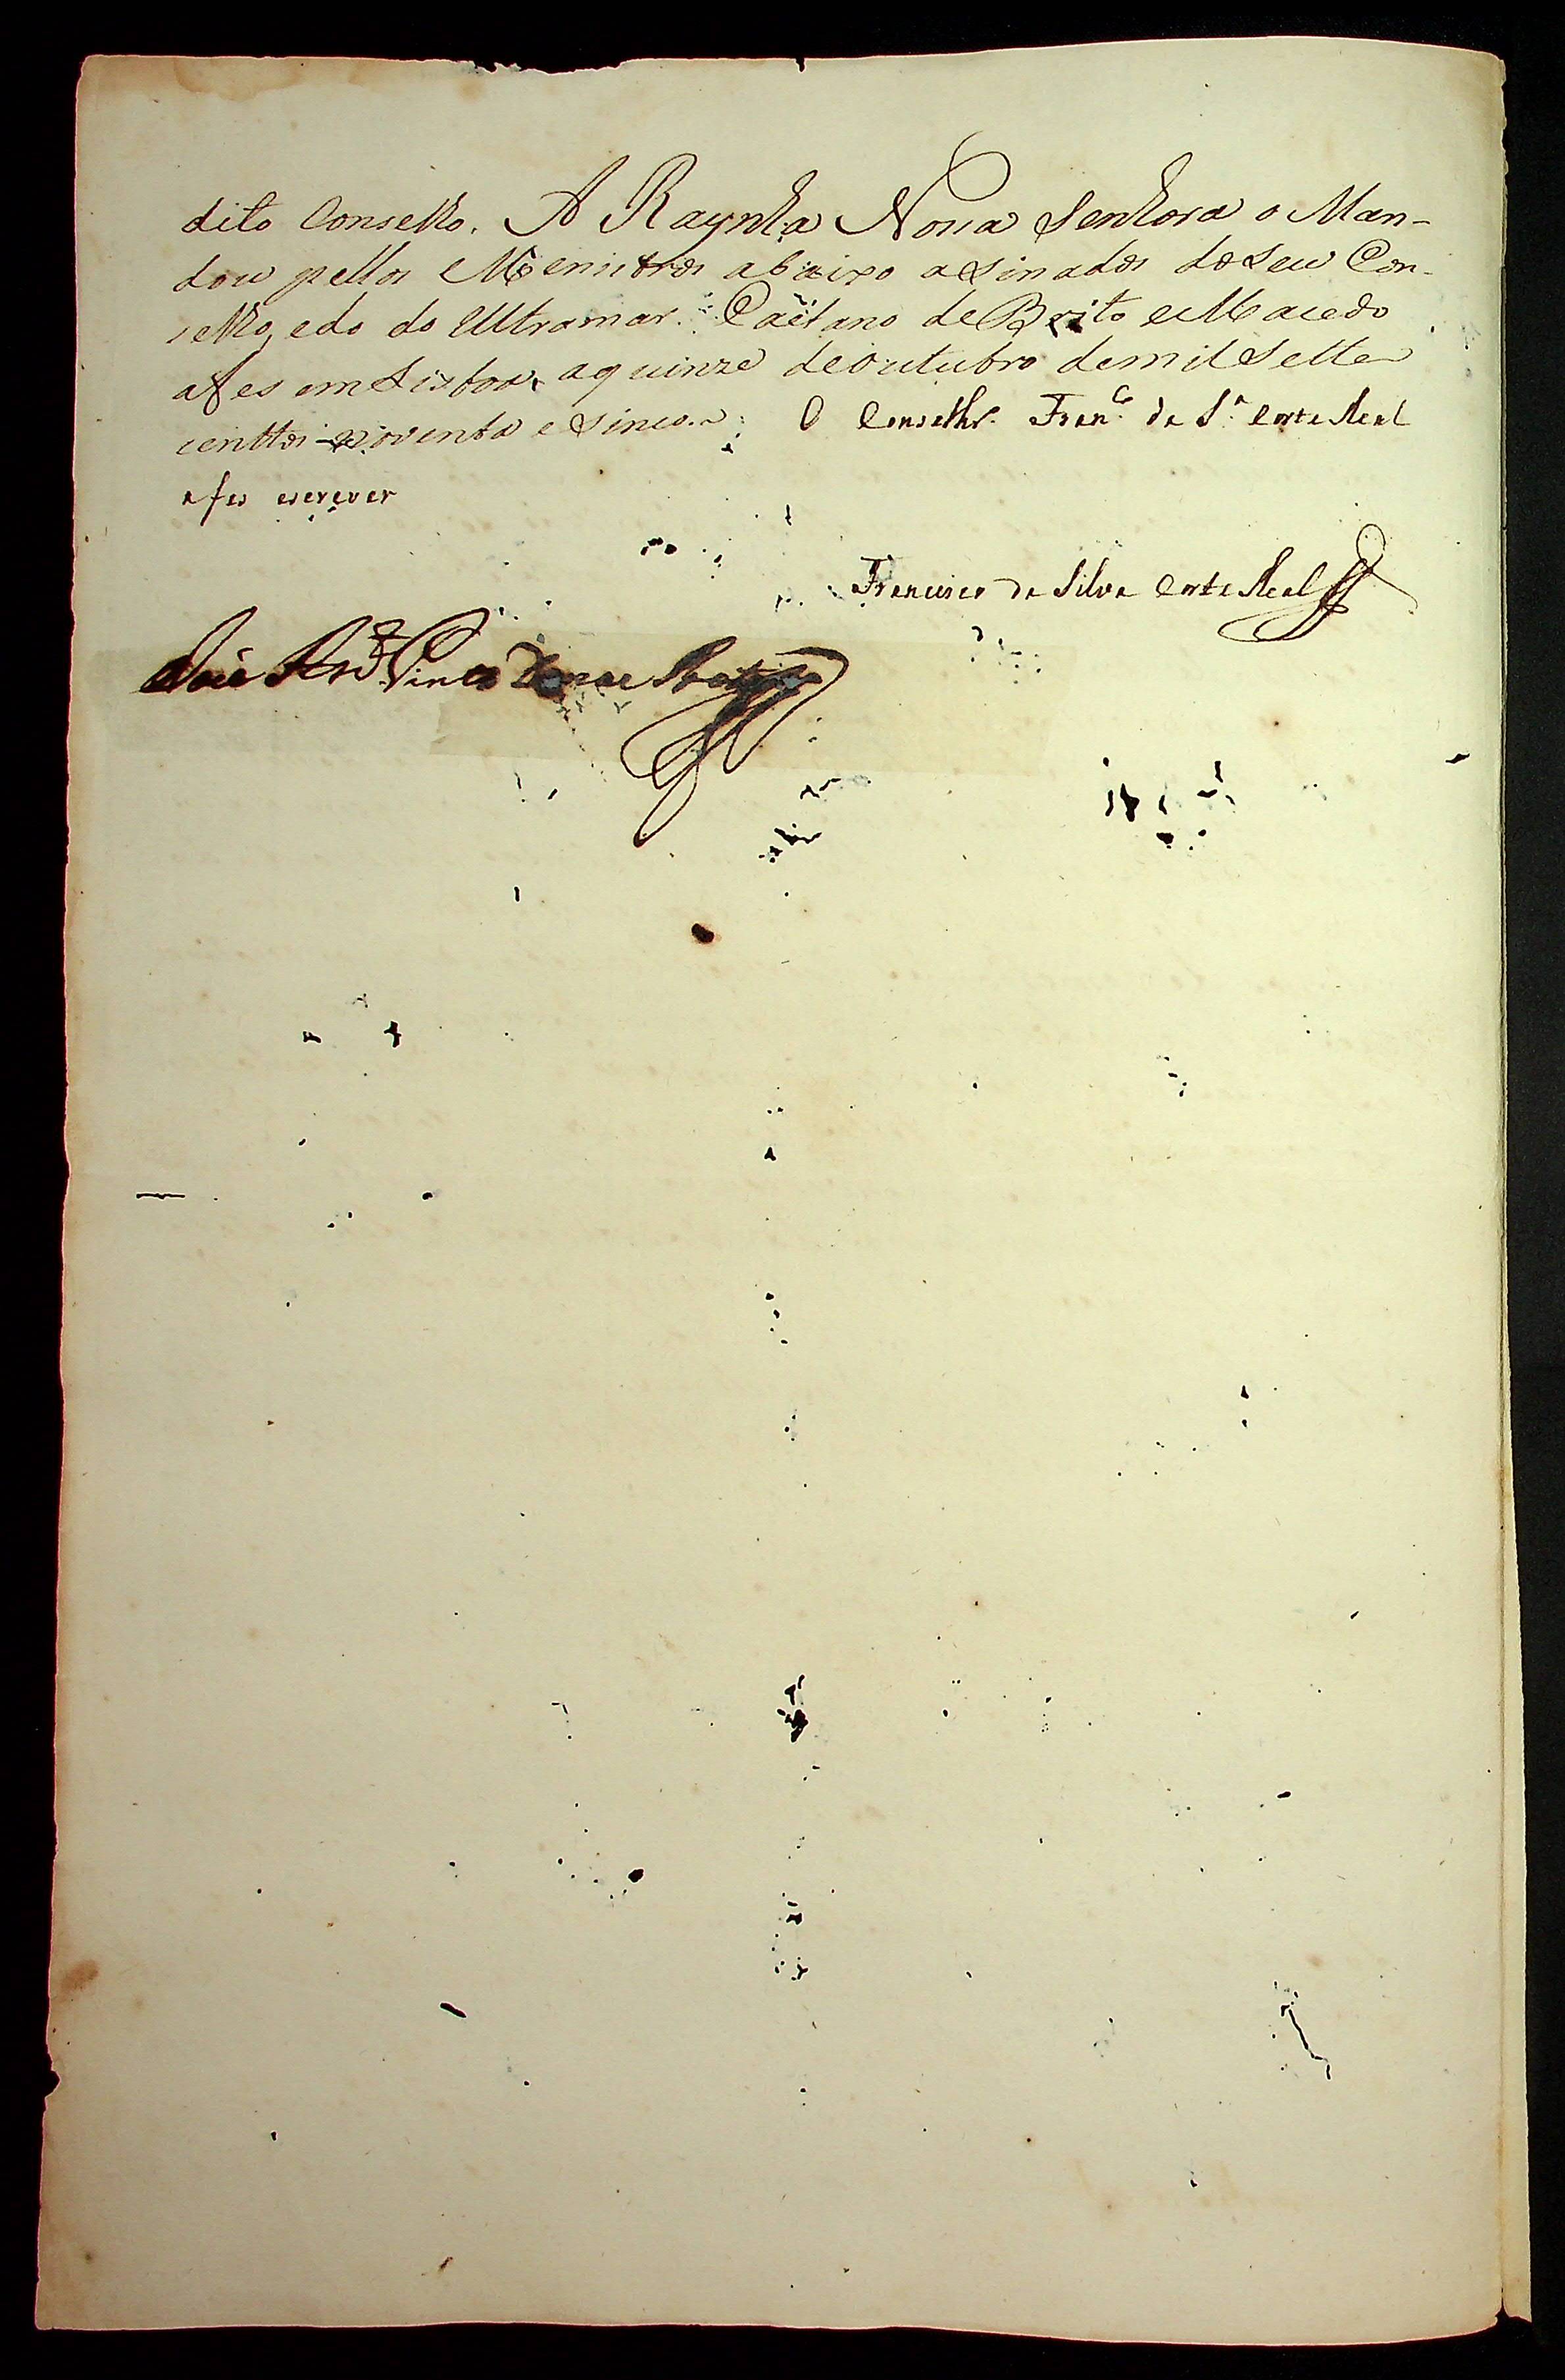 dito Conselho. A Raynha Nossa Senhora o Man-
dou pellos Menistros abaixo asinados do seu Con-
selho, e do do Ultramar. Caetano de Brito e Macedo
a fes em Lisboa, a quinze de outubro de mil sette
centtos noventa e sinco. O Conselhr.º Fran.co da S.ª Corte Real
a fes escrever
Francisco da Silva Corte Real
Pinto